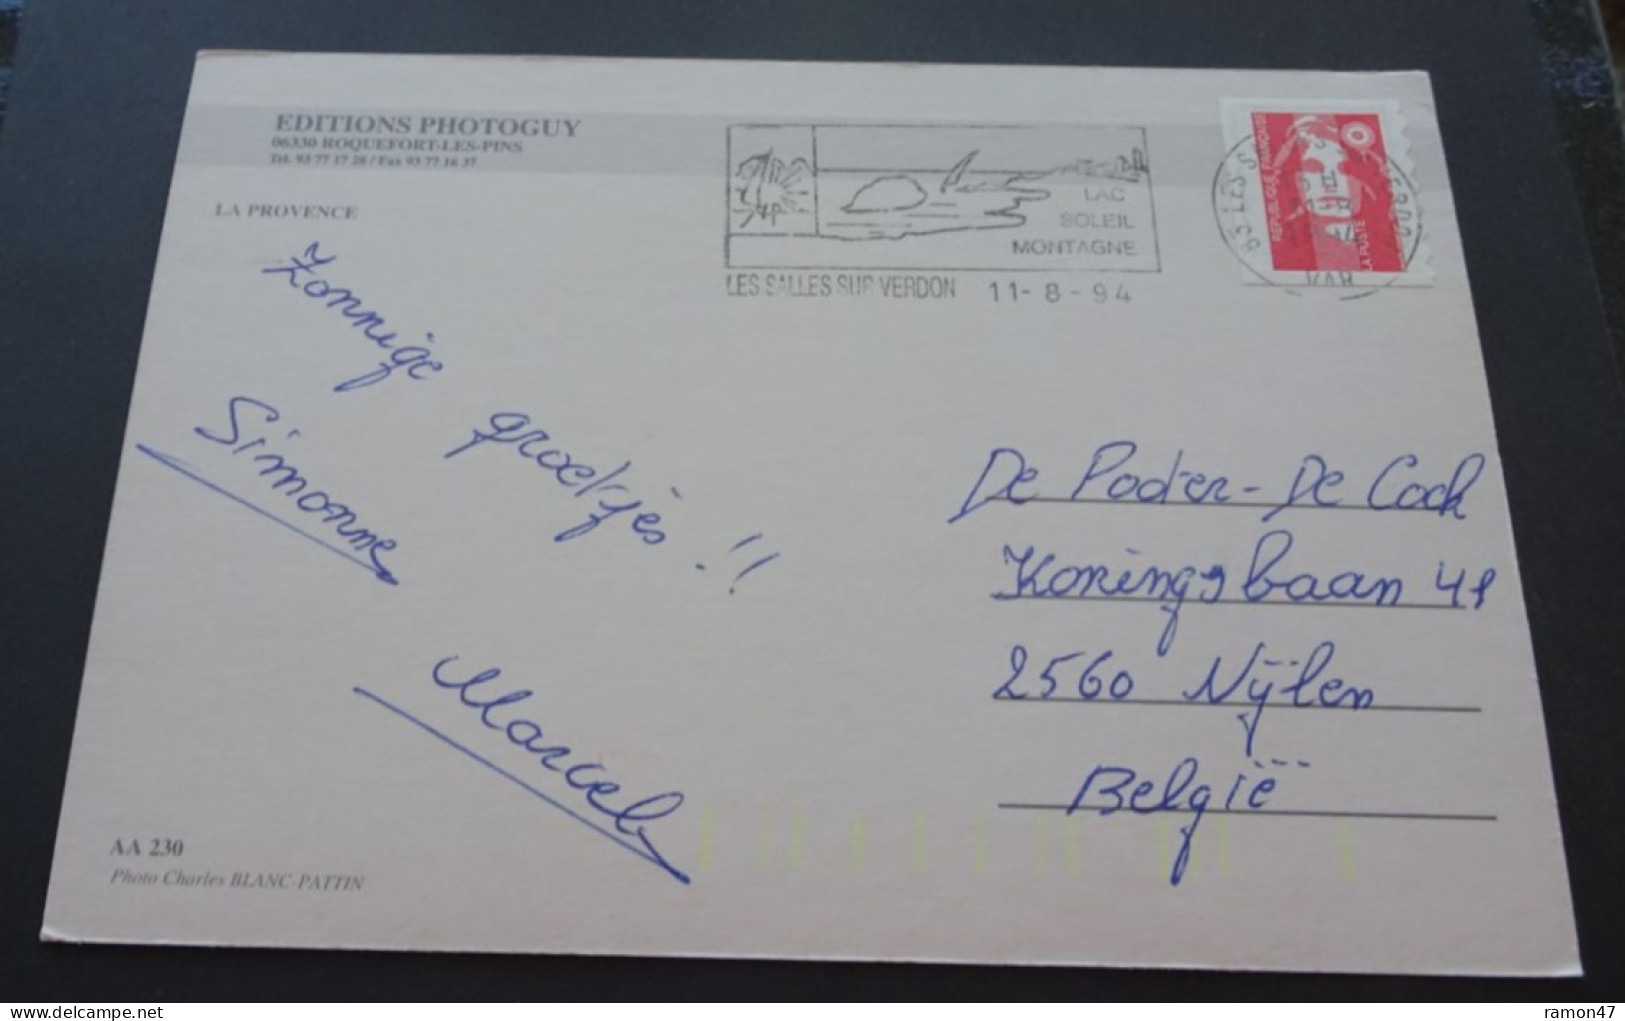 EDITIONS PHOTOGUY
06330 ROQUEFORT-LES-PINS
Tél. 93 77 17 28 / Fax 93 77 16 37
LA PROVENCE
LAC
SOLEIL
MONTAGNE
LES SALLES SUR VERDON 11-8-94
REPUBLIQUE FRANÇAISE
LA POSTE
VAR
Zonnige groetjès !!
Simonne
Marcel
De Poder - De Cock
Koningsbaan 41
2560 Nijlen
België
AA 230
Photo Charles BLANC-PATTIN
delcampe.net
ramon47